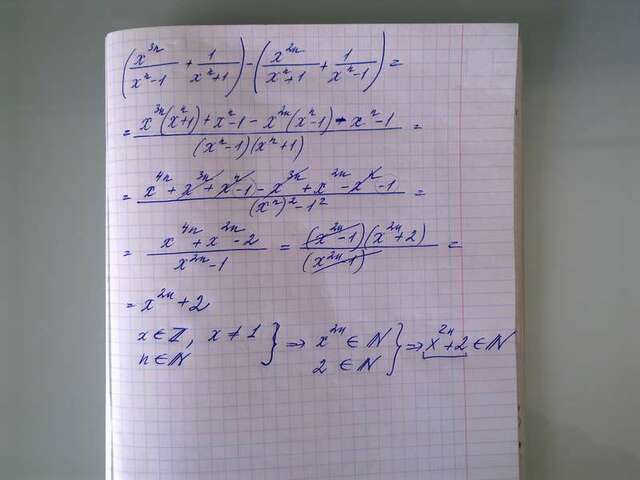 (x^{3n}/(x^n-1) + 1/(x^n+1)) - (x^{2n}/(x^n+1) + 1/(x^n-1)) =
= (x^{3n}(x^n+1) + x^n-1 - x^{2n}(x^n-1) - x^n-1)/((x^n-1)(x^n+1)) =
= (x^{4n} + x^{3n} + x^n-1 - x^{3n} + x^{2n} - x^n-1)/((x^n)^2 - 1^2) =
= (x^{4n} + x^{2n} - 2)/(x^{2n}-1) = ((x^{2n}-1)(x^{2n}+2))/(x^{2n}-1) =
= x^{2n} + 2
x ∈ ℤ, x ≠ 1
n ∈ ℕ } ⇒ x^{2n} ∈ ℕ
2 ∈ ℕ } ⇒ x^{2n}+2 ∈ ℕ